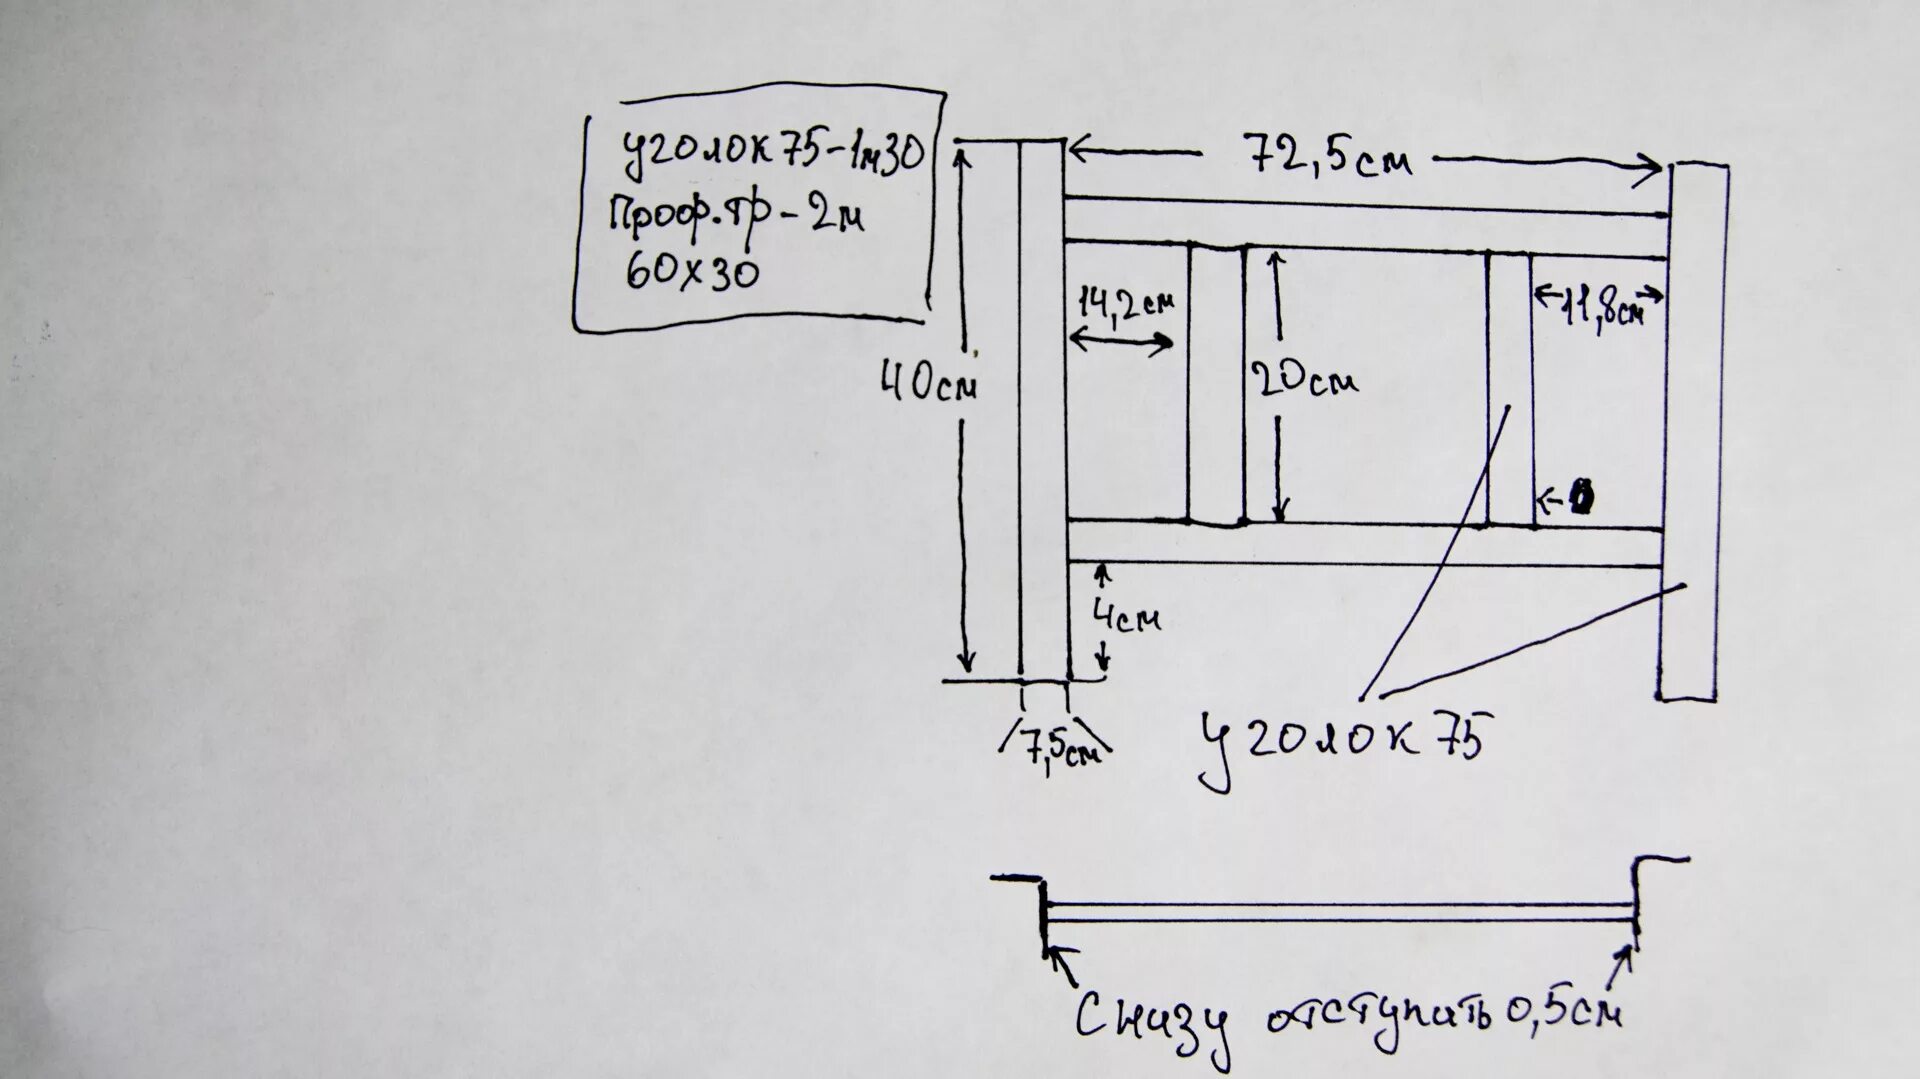 уголок 75-1м30
Проф.тр-2м
60х30
72,5см
14,2см
11,8см
40см
20см
4см
7,5см
уголок 75
Снизу отступить 0,5см